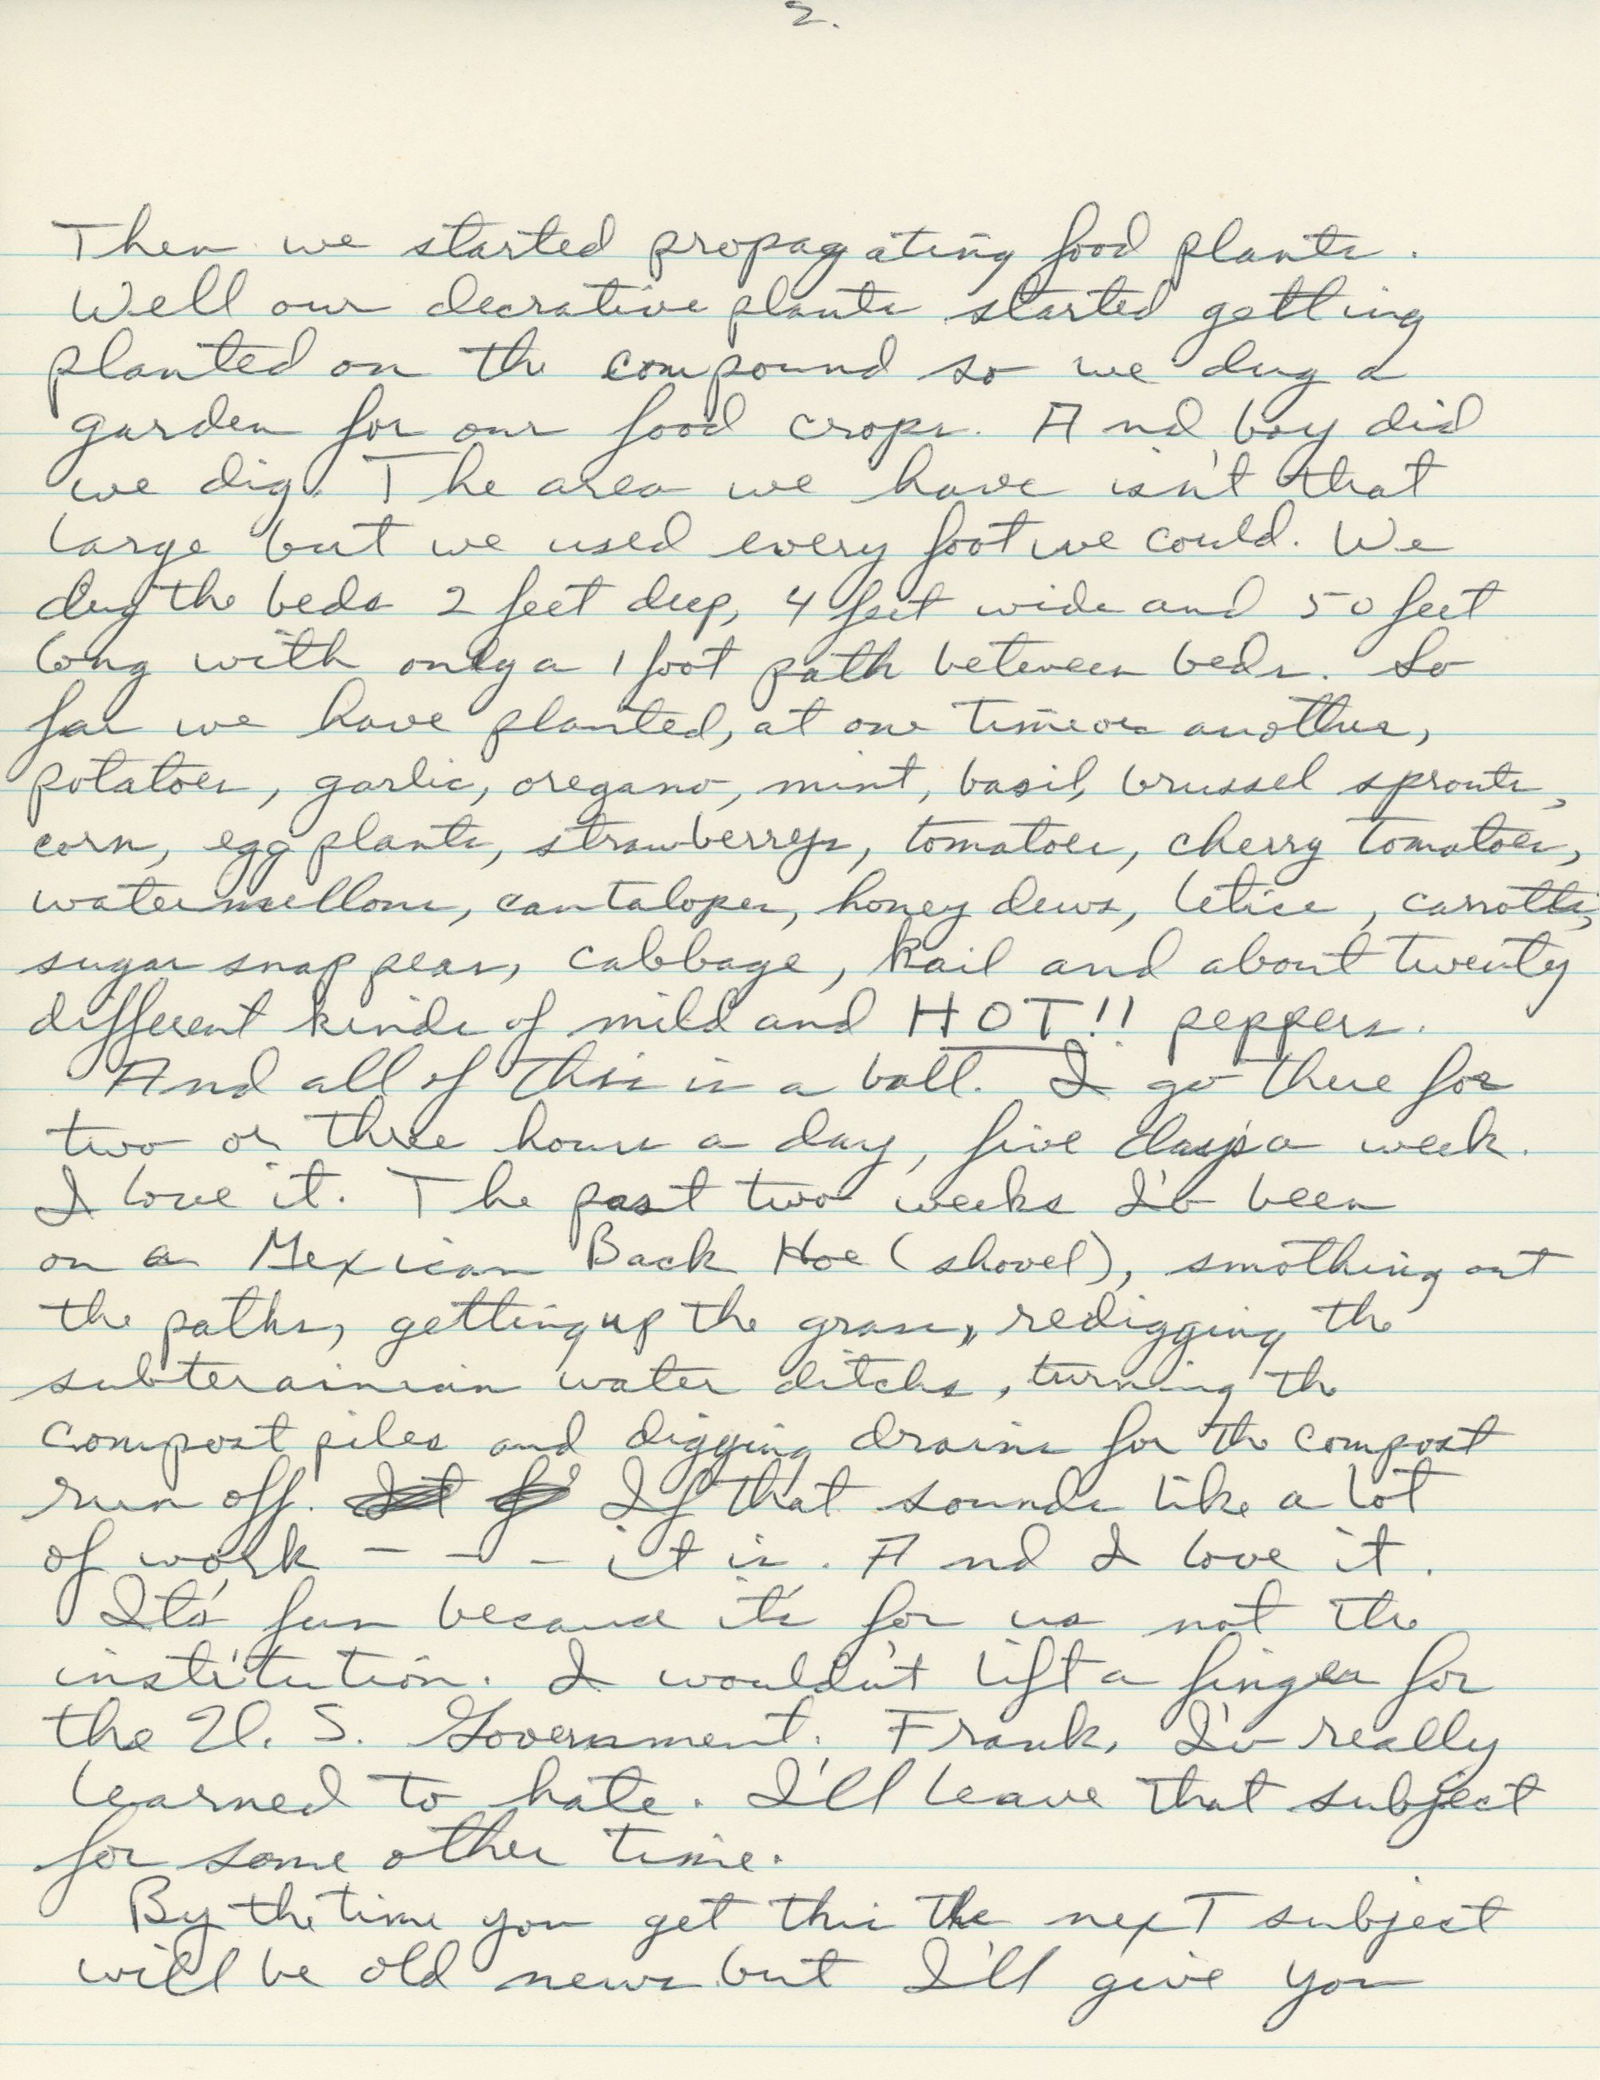 2.
Then we started propagating food plants.
Well our decrative plants started getting
planted on the compound so we dug a
garden for our food crops. And boy did
we dig. The area we have isn't that
large but we used every foot we could. We
dug the beds 2 feet deep, 4 feet wide and 50 feet
long with only a 1 foot path between beds. So
far we have planted, at one time or another,
potatoes, garlic, oregano, mint, basil, brussel sprouts,
corn, egg plants, strawberrys, tomatoes, cherry tomatoes,
watermellons, cantalopes, honey dews, letice, carrotts,
sugar snap peas, cabbage, kail and about twenty
different kinds of mild and HOT!! peppers.
And all of this is a ball. I go there for
two or three hours a day, five days a week.
I love it. The past two weeks I'v been
on a Mexican Back Hoe (shovel), smothing out
the paths, getting up the grass, redigging the
subterainian water ditchs, turning the
compost piles and digging drains for the compost
run off. If that sounds like a lot
of work - - - it is. And I love it.
It's fun because it's for us not the
institution. I wouldn't lift a finger for
the U. S. Government. Frank, I'v really
learned to hate. I'll leave that subject
for some other time.
By the time you get this the next subject
will be old news but I'll give you